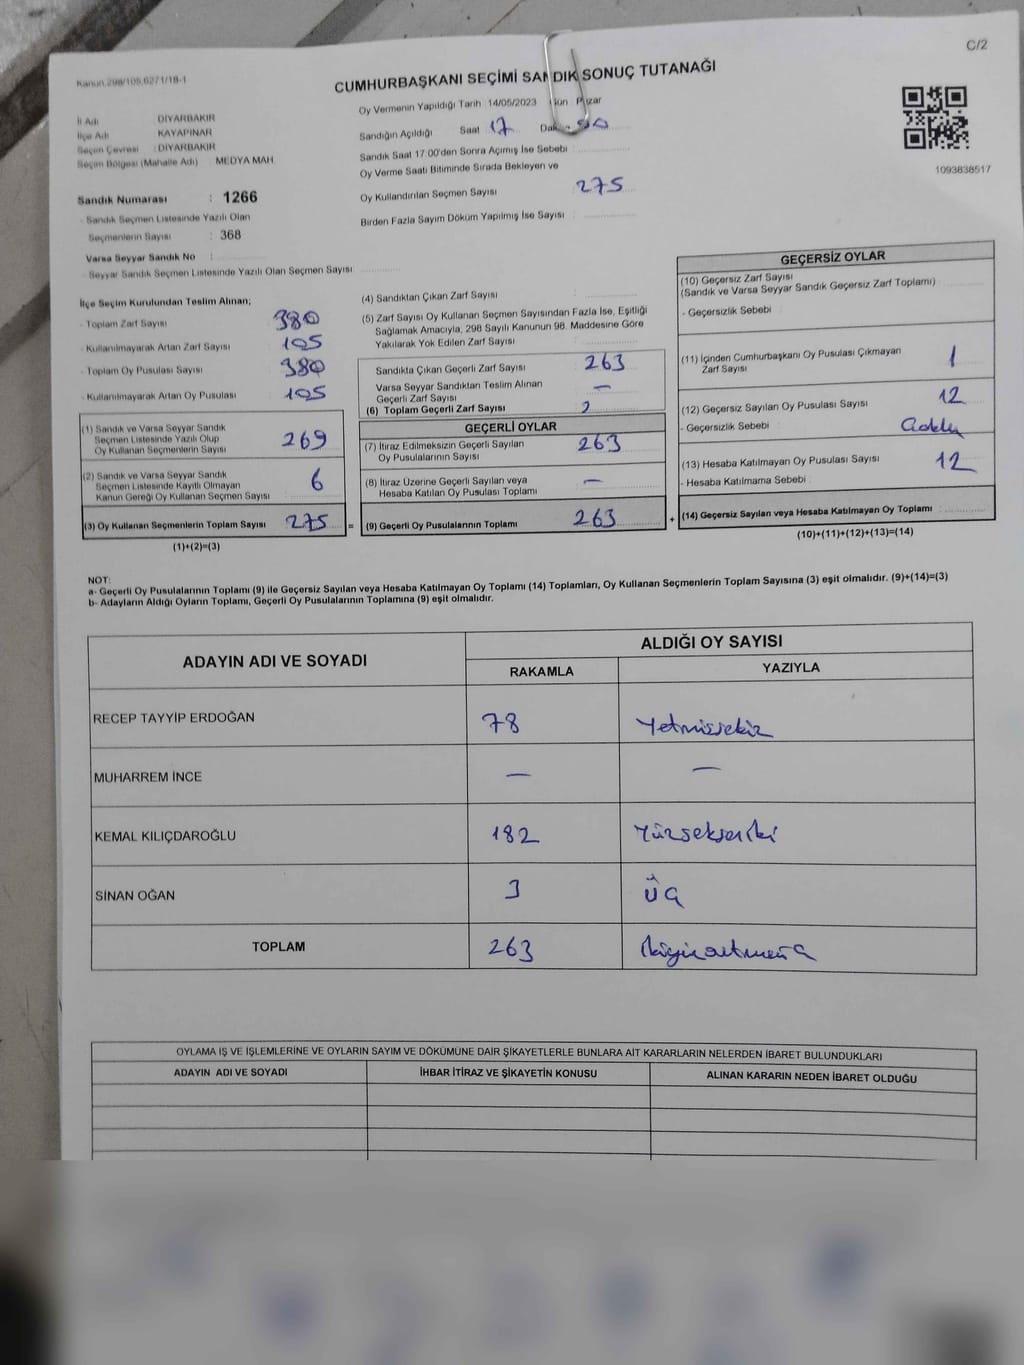 C/2
Kanun 298/105,6271/18-1
CUMHURBAŞKANI SEÇİMİ SANDIK SONUÇ TUTANAĞI
İl Adı : DİYARBAKIR
İlçe Adı : KAYAPINAR
Seçim Çevresi : DİYARBAKIR
Seçim Bölgesi (Mahalle Adı) : MEDYA MAH.
Sandık Numarası : 1266
- Sandık Seçmen Listesinde Yazılı Olan
Seçmenlerin Sayısı : 368
Varsa Seyyar Sandık No :
- Seyyar Sandık Seçmen Listesinde Yazılı Olan Seçmen Sayısı
Oy Vermenin Yapıldığı Tarih 14/05/2023 Gün Pazar
Sandığın Açıldığı Saat 17
Sandık Saat 17:00'den Sonra Açımış İse Sebebi
Oy Verme Saati Bitiminde Sırada Bekleyen ve
Oy Kullandırılan Seçmen Sayısı 275
Birden Fazla Sayım Döküm Yapılmış İse Sayısı
1093838517
İlçe Seçim Kurulundan Teslim Alınan;
- Toplam Zarf Sayısı 380
- Kullanılmayarak Artan Zarf Sayısı 105
- Toplam Oy Pusulası Sayısı 380
- Kullanılmayarak Artan Oy Pusulası 105
(1) Sandık ve Varsa Seyyar Sandık
Seçmen Listesinde Yazılı Olup
Oy Kullanan Seçmenlerin Sayısı 269
(2) Sandık ve Varsa Seyyar Sandık
Seçmen Listesinde Kayıtlı Olmayan
Kanun Gereği Oy Kullanan Seçmen Sayısı 6
(3) Oy Kullanan Seçmenlerin Toplam Sayısı 275 =
(1)+(2)=(3)
(4) Sandıktan Çıkan Zarf Sayısı
(5) Zarf Sayısı Oy Kullanan Seçmen Sayısından Fazla İse, Eşitliği
Sağlamak Amacıyla, 298 Sayılı Kanunun 98. Maddesine Göre
Yakılarak Yok Edilen Zarf Sayısı
Sandıkta Çıkan Geçerli Zarf Sayısı 263
Varsa Seyyar Sandıktan Teslim Alınan
Geçerli Zarf Sayısı —
(6) Toplam Geçerli Zarf Sayısı
GEÇERLİ OYLAR
(7) İtiraz Edilmeksizin Geçerli Sayılan
Oy Pusulalarının Sayısı 263
(8) İtiraz Üzerine Geçerli Sayılan veya
Hesaba Katılan Oy Pusulası Toplamı —
(9) Geçerli Oy Pusulalarının Toplamı 263 +
GEÇERSİZ OYLAR
(10) Geçersiz Zarf Sayısı
(Sandık ve Varsa Seyyar Sandık Geçersiz Zarf Toplamı)
- Geçersizlik Sebebi
(11) İçinden Cumhurbaşkanı Oy Pusulası Çıkmayan
Zarf Sayısı 1
(12) Geçersiz Sayılan Oy Pusulası Sayısı 12
- Geçersizlik Sebebi
(13) Hesaba Katılmayan Oy Pusulası Sayısı 12
- Hesaba Katılmama Sebebi
(14) Geçersiz Sayılan veya Hesaba Katılmayan Oy Toplamı
(10)+(11)+(12)+(13)=(14)
NOT:
a- Geçerli Oy Pusulalarının Toplamı (9) ile Geçersiz Sayılan veya Hesaba Katılmayan Oy Toplamı (14) Toplamları, Oy Kullanan Seçmenlerin Toplam Sayısına (3) eşit olmalıdır. (9)+(14)=(3)
b- Adayların Aldığı Oyların Toplamı, Geçerli Oy Pusulalarının Toplamına (9) eşit olmalıdır.
ADAYIN ADI VE SOYADI
ALDIĞI OY SAYISI
RAKAMLA YAZIYLA
RECEP TAYYİP ERDOĞAN 78 Yetmişsekiz
MUHARREM İNCE — —
KEMAL KILIÇDAROĞLU 182 Yüzsekseniki
SİNAN OĞAN 3 Üç
TOPLAM 263
OYLAMA İŞ VE İŞLEMLERİNE VE OYLARIN SAYIM VE DÖKÜMÜNE DAİR ŞİKAYETLERLE BUNLARA AİT KARARLARIN NELERDEN İBARET BULUNDUKLARI
ADAYIN ADI VE SOYADI İHBAR İTİRAZ VE ŞİKAYETİN KONUSU ALINAN KARARIN NEDEN İBARET OLDUĞU